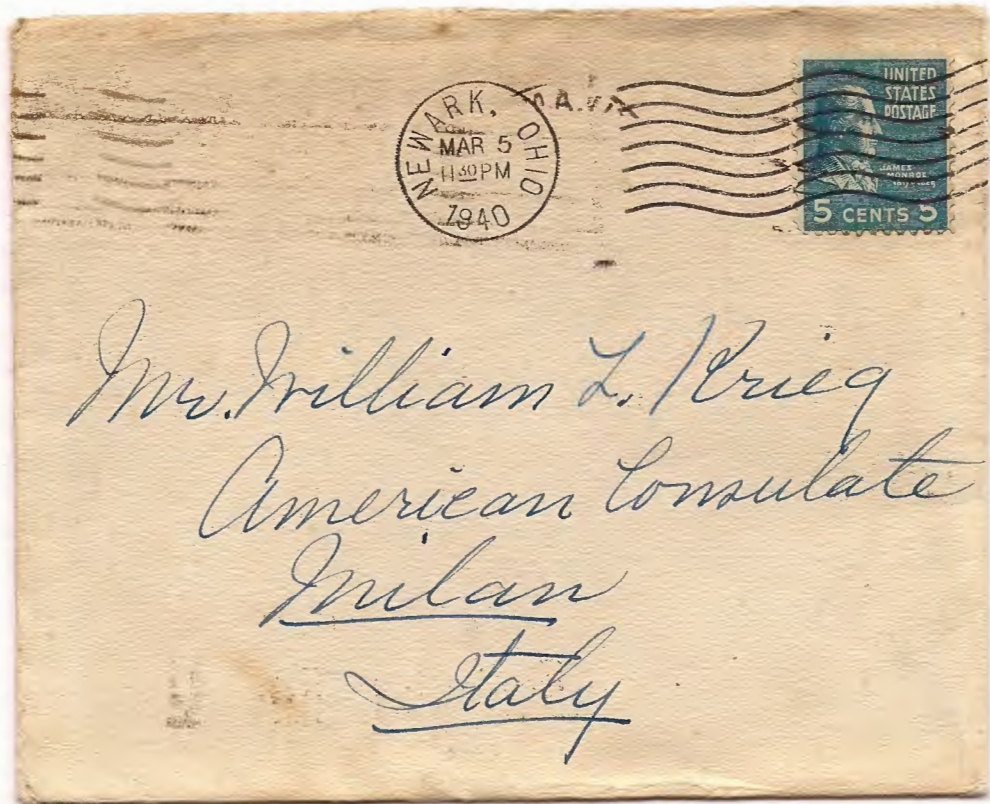 NEWARK, OHIO
MAR 5
11 30 PM
1940
UNITED
STATES
POSTAGE
JAMES
MONROE
5 CENTS 5
Mr. William L. Krieg
American Consulate
Milan
Italy